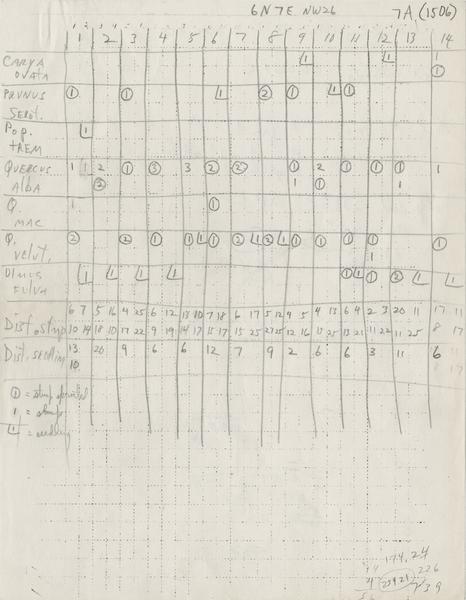 6N7E NW26 7A (1506)
1 2 3 4 5 6 7 8 9 10 11 12 13 14
CARYA 1 1 1
OVATA 1
PRUNUS 1 1 1 2 1 1 1
SEROT.
Pop. 1
TREM
QUERCUS 1 1 2 1 3 3 2 2 1 2 1 1 1 1
ALBA 2 1 1 1
Q. 1 1
MAC
Q. 2 2 1 1 1 1 2 1 2 1 1 1 1 1 1
VELUT. 1
ULMUS 1 1 1 1 1 1 1 2 1 1
FULVA
Dist. stump 6 7 5 16 4 25 6 12 13 10 7 18 6 17 5 12 9 5 4 13 6 4 2 3 20 11 17 11
10 14 18 10 17 22 9 19 14 17 15 17 15 25 21 25 12 16 15 25 13 21 11 22 11 25 8 17
Dist. seedling 13 20 9 6 6 12 7 9 2 6 6 3 11 6
10
1 = stump sprouted
1 = stump
1 = seedling
174.24
226